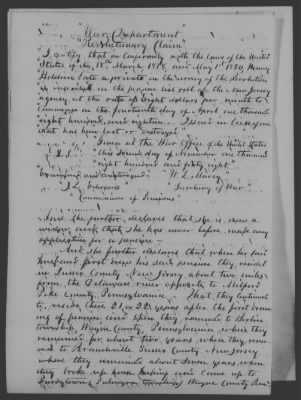 "War Department
"Revolutionary Claim"
I certify that in conformity with the Laws of the United
States of the 18th March 1818, and May 1st 1820, Henry
late a private in the army of the Revolution
is inscribed on the pension list roll of the New Jersey
agency at the rate of Eight dollars per month to
commence on the fourteenth day of April one thousand
eight hundred and eighteen Issued in lieu of one
that has been lost or destroyed"
Given at the War Office of the United States
this second day of November one thousand
eight hundred and forty eight
W. L. Marcy
"Secretary of War"
"J. L. Edwards
"Commissioner of Pensions"
And she further declares that she is now a
widow, and that she has never before made any
application for a pension—
And she further declares that when her said
husband first drew his said pension they resided
in Sussex County New Jersey about two miles
from the Delaware river opposite to Milford
Pike County, Pennsylvania, That they continued
to reside there 21 or 22 years after the first drawing
of pension and then they removed to Berlin
township, Wayne County, Pennsylvania where they
remained for about two years when they removed
to Branchville Sussex County New Jersey
where they remained about seven years when
they broke up house keeping and came up to
township Wayne County